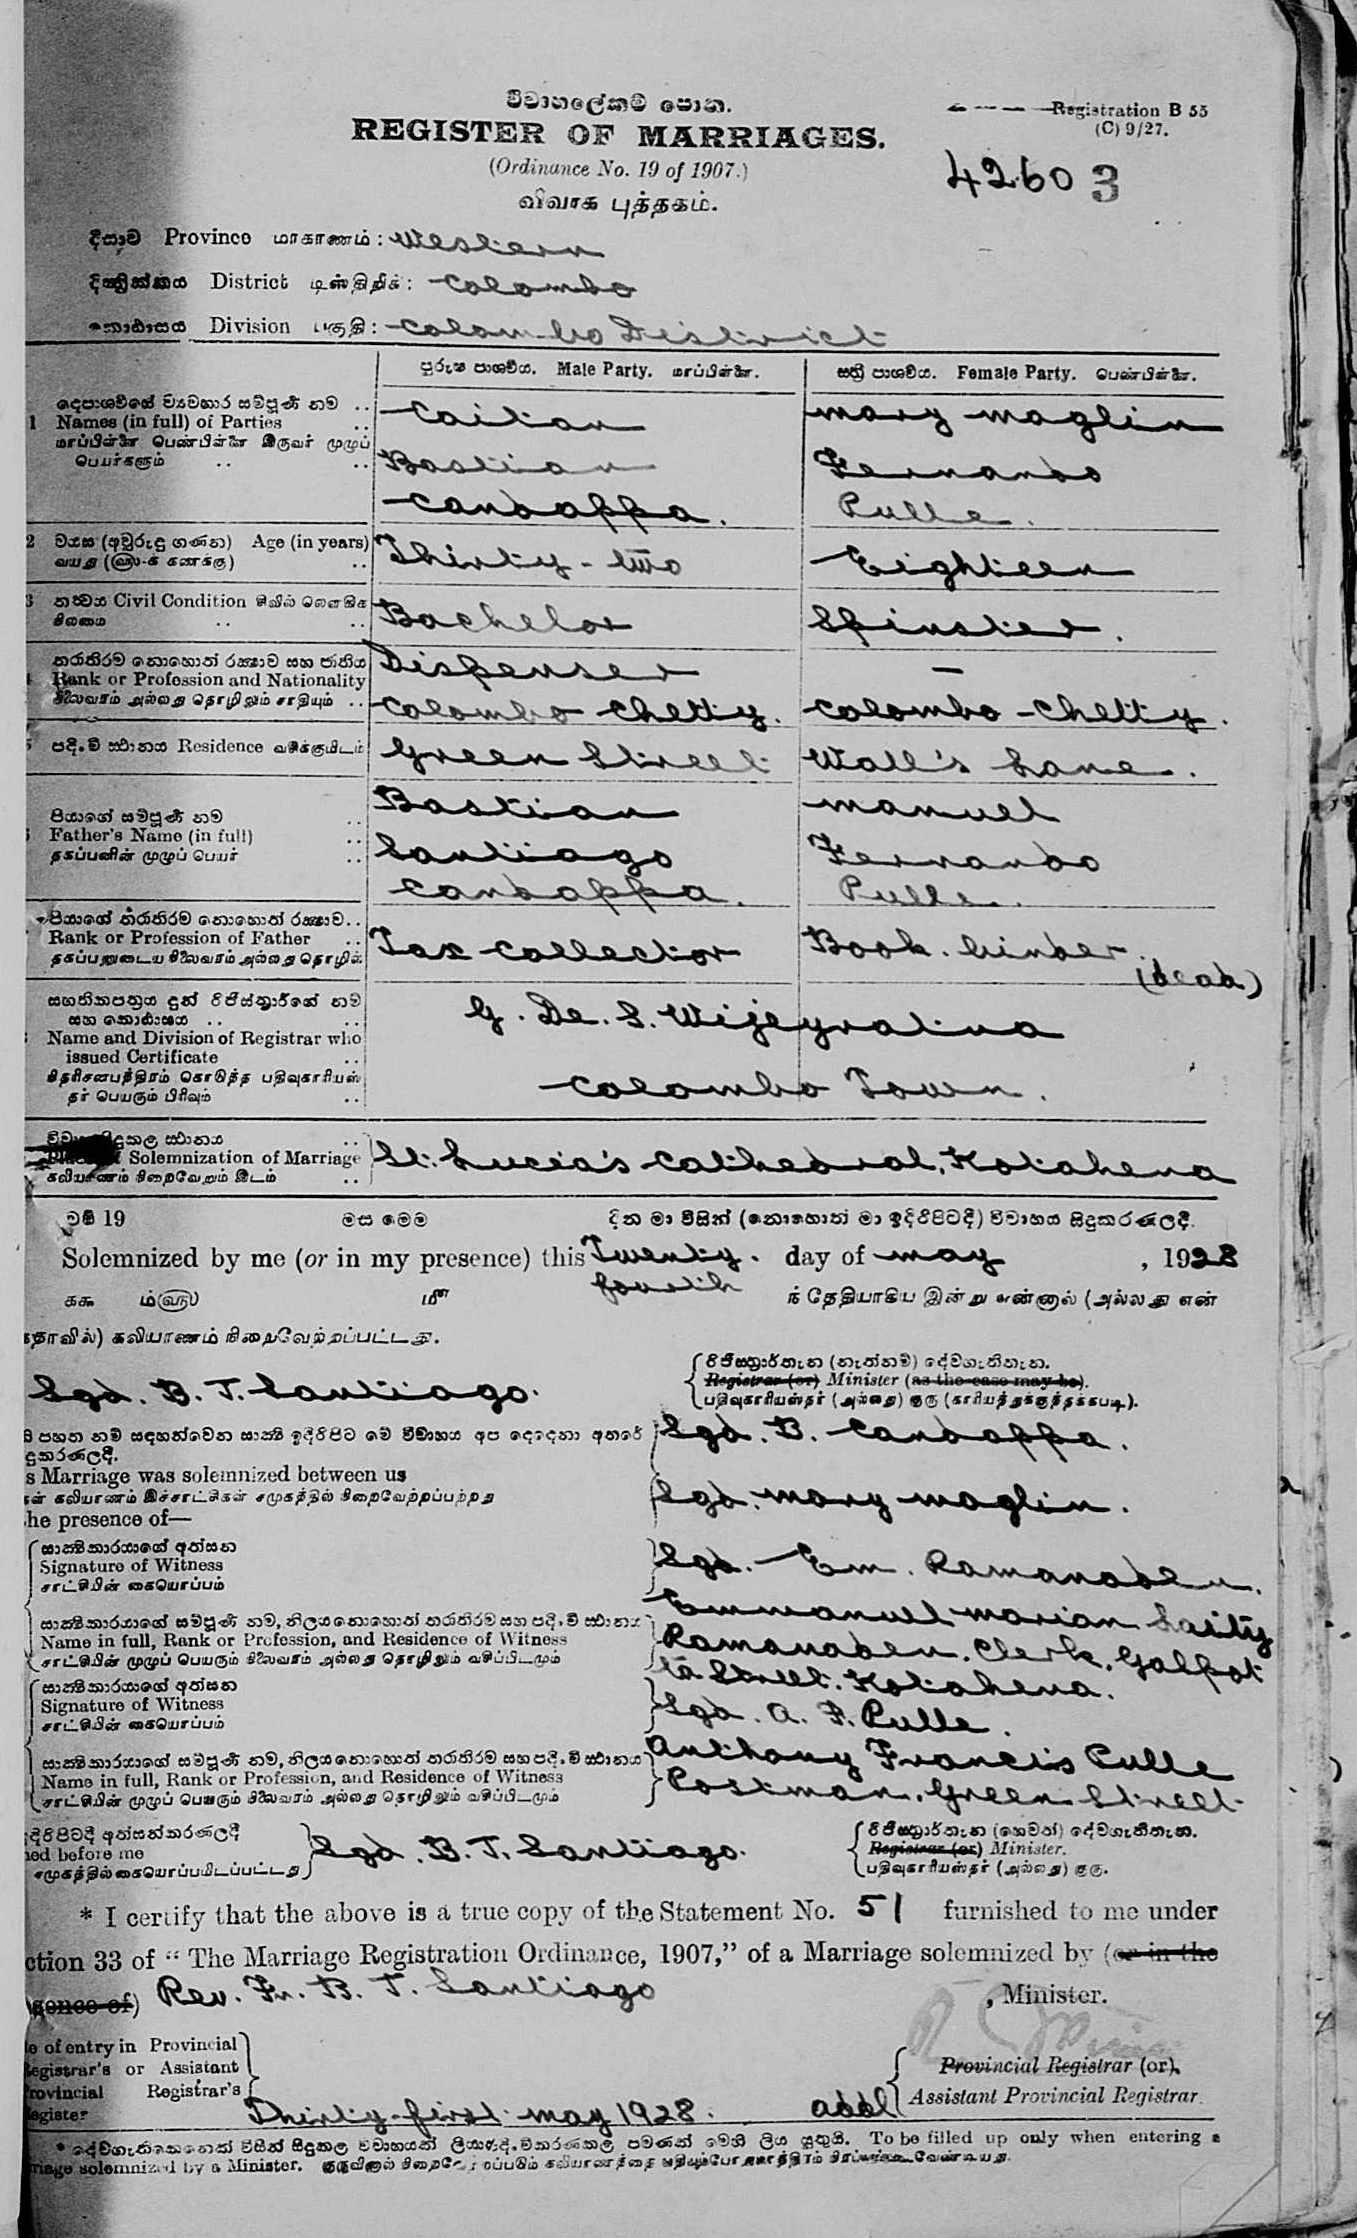 විවාහලේකම් පොත.
REGISTER OF MARRIAGES.
(Ordinance No. 19 of 1907.)
விவாக புத்தகம்.
Registration B 55
(C) 9/27.
42603
දිසාව Province மாகாணம்: Western
දිස්ත්‍රික්කය District டிஸ்திரிக்: Colombo
කොට්ඨාසය Division பகுதி: Colombo District
පුරුෂ පාශ්වීය. Male Party. மாப்பிள்ளை.
ස්ත්‍රී පාශ්වීය. Female Party. பெண்பிள்ளை.
දෙපාශ්වයේ ව්‍යවහාර සම්පූණි නම් ..
1 Names (in full) of Parties ..
மாப்பிள்ளை பெண்பிள்ளை இருவர் முழுப்
பெயர்களும் .. ..
Caitan Bastian Candappa.
Mary Maglin Fernando Pulle.
2 වයස (අවුරුදු ගණන) Age (in years)
வயது (௵-க் கணக்கு) ..
Thirty-two
Eighteen
3 තත්වය Civil Condition சிவில் லௌகிக
நிலைமை .. ..
Bachelor
Spinster.
තරාතිරම නොහොත් රක්ෂාව සහ ජාතිය
Rank or Profession and Nationality
நிலைவரம் அல்லது தொழிலும் சாதியும் ..
Dispenser
Colombo Chetty.
—
Colombo-Chetty.
පදිංචි ස්ථානය Residence வசிக்குமிடம்
Green Street
Wall's Lane.
පියාගේ සම්පූණි නම ..
Father's Name (in full) ..
தகப்பனின் முழுப் பெயர் ..
Bastian Santiago Candappa.
Manuel Fernando Pulle.
පියාගේ තරාතිරම නොහොත් රක්ෂාව..
Rank or Profession of Father ..
தகப்பனுடைய நிலைவரம் அல்லது தொழில்
Tax Collector
Book. binder.
(dead)
සහතිකපත්‍රය දුන් රෙජිස්ත්‍රාර්ගේ නම
සහ කොට්ඨාසය .. ..
Name and Division of Registrar who
issued Certificate ..
அத்தாட்சிப்பத்திரம் கொடுத்த பதிவுகாரியஸ்
தர் பெயரும் பிரிவும் ..
G. De. S. Wijeyratina
Colombo Town.
ස්ථානය ..
Solemnization of Marriage
கலியாணம் நிறைவேறும் இடம் ..
St. Lucia's Cathedral, Kotahena
වම් 19 මස මෙම දින මා විසින් (නොහොත් මා ඉදිරිපිටදී) විවාහය සිදුකරණලදී.
Solemnized by me (or in my presence) this Twenty. fourth day of May, 1928
ந் தேதியாகிய இன்று என்னால் (அல்லது என்
கலியாணம் நிறைவேற்றப்பட்டது.
Sgd. B. T. Santiago.
රෙජිස්ත්‍රාර්තැන (නැත්නම්) දේවගැතිතැන.
Registrar (or) Minister (as the case may be).
பதிவுகாரியஸ்தர் (அல்லது) குரு (காரியத்துக்குத்தக்கபடி).
පහත නම් සඳහන්වෙන සාක්ෂි ඉදිරිපිට මේ විවාහය අප දෙදෙනා අතරේ
s Marriage was solemnized between us
கலியாணம் இச்சாட்சிகள் சமுகத்தில் நிறைவேற்றப்பற்றது
he presence of—
Sgd. B. Candappa.
Sgd. Mary Maglin.
සාක්ෂිකාරයාගේ අත්සන
Signature of Witness
சாட்சியின் கையொப்பம்
Sgd. Em. Ramanaden.
සාක්ෂිකාරයාගේ සම්පූණි නම, නිලය නොහොත් තරාතිරම සහ පදිංචි ස්ථානය
Name in full, Rank or Profession, and Residence of Witness
சாட்சியின் முழுப் பெயரும் நிலைவரம் அல்லது தொழிலும் வசிப்பிடமும்
Emmanuel Marian
Ramanaden. Clerk. Galpot
ta Street. Kotahena.
සාක්ෂිකාරයාගේ අත්සන
Signature of Witness
சாட்சியின் கையொப்பம்
Sgd. A. F. Pulle.
සාක්ෂිකාරයාගේ සම්පූණි නම, නිලය නොහොත් තරාතිරම සහ පදිංචි ස්ථානය
Name in full, Rank or Profession, and Residence of Witness
சாட்சியின் முழுப் பெயரும் நிலைவரம் அல்லது தொழிலும் வசிப்பிடமும்
Anthony Francis Pulle
Postman. Green Street.
ඉදිරිපිටදී අත්සන්කරණලදී
ned before me
சமுகத்தில் கையொப்பமிடப்பட்டது
Sgd. B. T. Santiago.
රෙජිස්ත්‍රාර්තැන (හෙවත්) දේවගැතිතැන.
Registrar (or) Minister.
பதிவுகாரியஸ்தர் (அல்லது) குரு.
* I certify that the above is a true copy of the Statement No. 51 furnished to me under
ction 33 of "The Marriage Registration Ordinance, 1907," of a Marriage solemnized by (or in the
sence of) Rev. Fr. B. T. Santiago, Minister.
e of entry in Provincial
Registrar's or Assistant
Provincial Registrar's
egister
Thirty-first May 1928.
addl
Provincial Registrar (or)
Assistant Provincial Registrar.
To be filled up only when entering a
riage solemnized by a Minister.